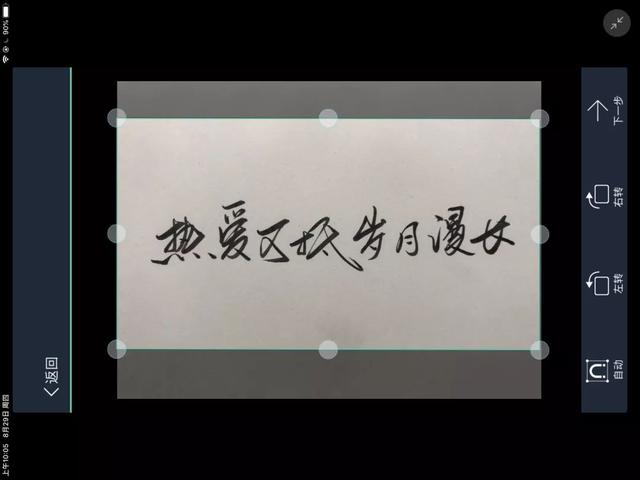 热爱可抵岁月漫长
90%
上午10:05 8月29日 周四
返回
下一步
右转
左转
自动